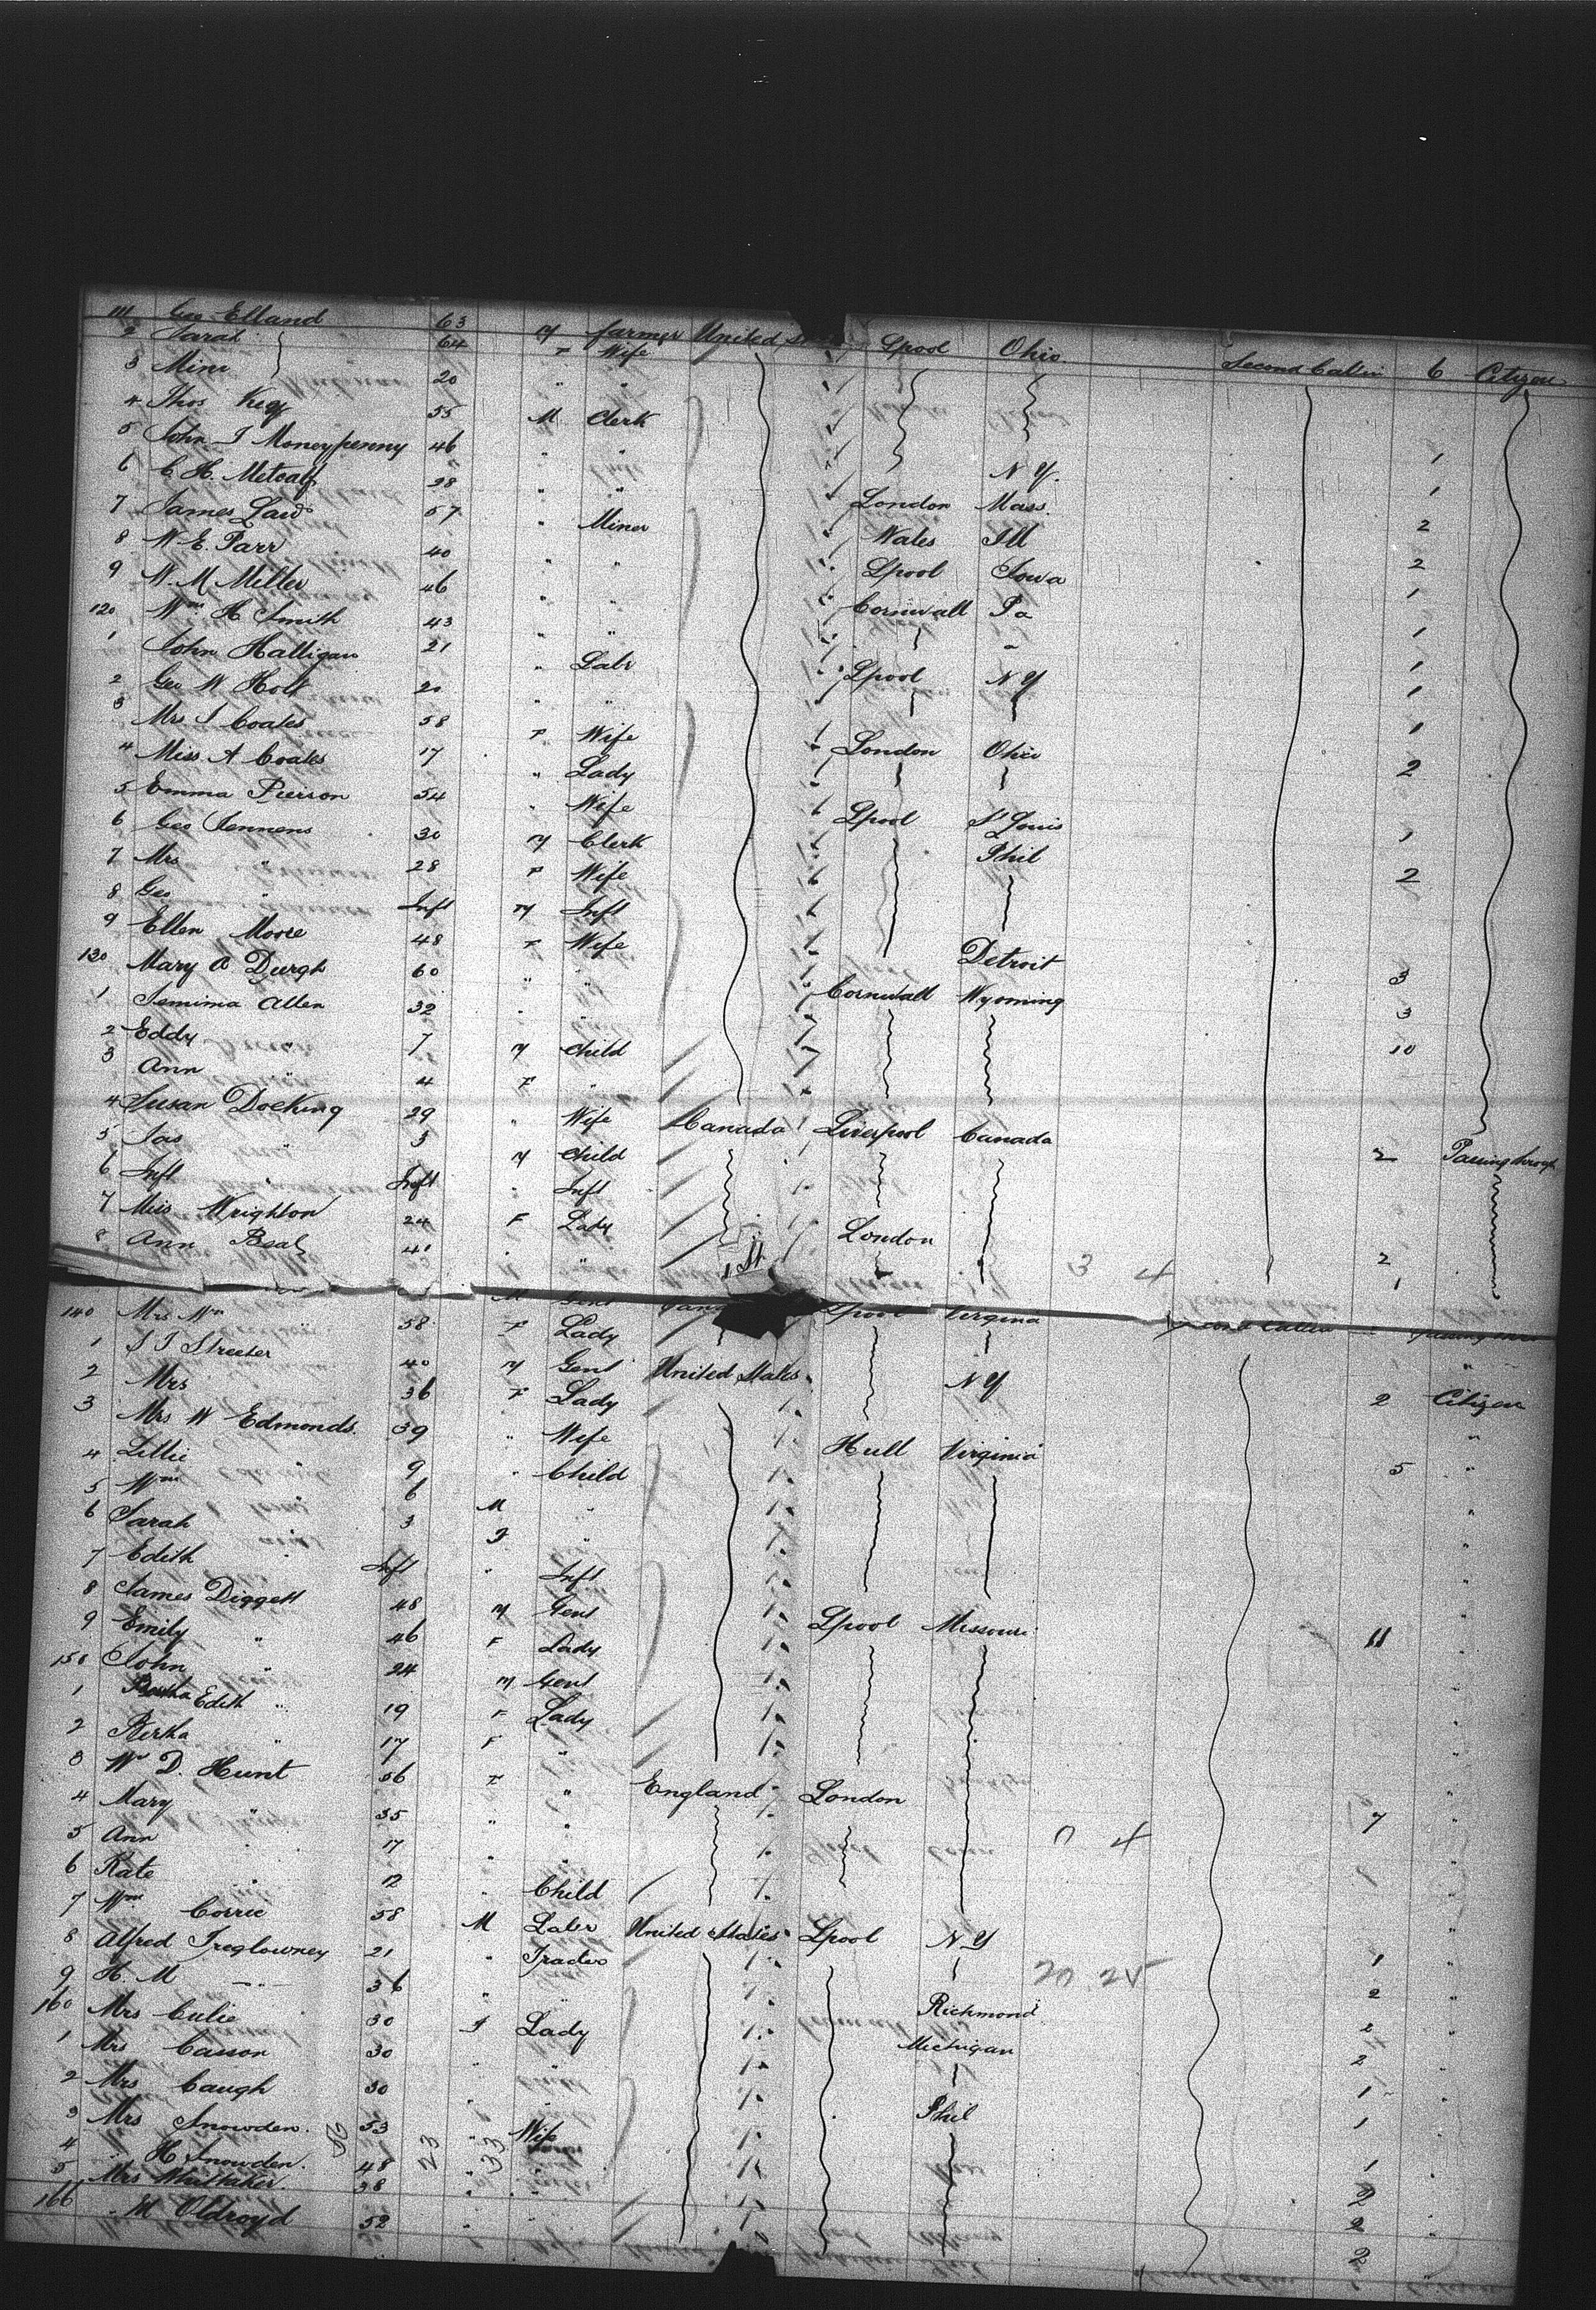 111 Geo Elland 63 M farmer United Spool Ohio Second Cabin 6 Citizen
2 Sarah 64 F Wife
3 Mini 20 " "
4 Thos Key 55 M Clerk
5 John I Moneypenny 46 " " N Y. 1
6 C. H. Metcalf 28 " " London Mass. 1
7 James Law 57 " Miner Wales Ill 2
8 W. E. Parr 40 " " Lpool Iowa 2
9 W. M Miller 46 " " Cornwall Pa 1
120 Wm H Smith 43 " " 1
1 John Halligan 21 " Labr Lpool N Y 1
2 Geo W Holt 20 " " 1
3 Mrs S Coates 58 F Wife London Ohio 1
4 Miss A Coates 17 " Lady 2
5 Emma Pierson 54 " Wife Lpool St Louis
6 Geo Jennens 30 M Clerk Phil 1
7 Mrs " 28 F Wife 2
8 Geo " Inft M Inft
9 Ellen Moore 48 F Wife Detroit
130 Mary A Durgh 60 " " Cornwall Wyoming 3
1 Jemima Allen 32 " " 3
2 Eddy " 7 M Child 10
3 Ann " 4 F "
4 Susan Docking 29 " Wife Canada Liverpool Canada
5 Jas " 3 M Child 2 Passing through
6 Inft " Inft " Inft
7 Miss Wrighton 24 F Lady London
8 Ann Beal 41 " " 2
3 4 1
Lpool Virginia
140 Mrs Wm 58 F Lady
1 S T Streeter 40 M Gent United States N Y "
2 Mrs 36 F Lady 2 Citizen
3 Mrs W Edmonds. 39 " Wife Hull Virginia "
4 Lillie " 9 " Child 5 "
5 Wm " 6 M "
6 Sarah " 3 F " "
7 Edith " Inft " Inft
8 James Diggett 48 M Gent Lpool Missouri "
9 Emily " 46 F Lady 11 "
150 John " 24 M Gent
1 Edith " 19 F Lady
2 Bertha " 17 F "
3 Wm D. Hunt 56 F " England London
4 Mary " 35 " " 7 "
5 Ann " 17 " " 0 4
6 Kate " 12 " Child "
7 Wm Corrie 58 M Labr United States Lpool N Y "
8 Alfred Treglowney 21 " Trader 20 25 1 "
9 H. M " 36 " " Richmond 2 "
160 Mrs Culie 30 F Lady Michigan 2 "
1 Mrs Casson 30 " " 2 "
2 Mrs Caugh 30 " " Phil 1 "
3 Mrs Snowden. 53 " Wife 1 "
4 " H Snowden. 48 " " 1 "
5 Mrs Whittaker. 38 " " 2
166 " M Oldroyd 52 " " 2 "
2